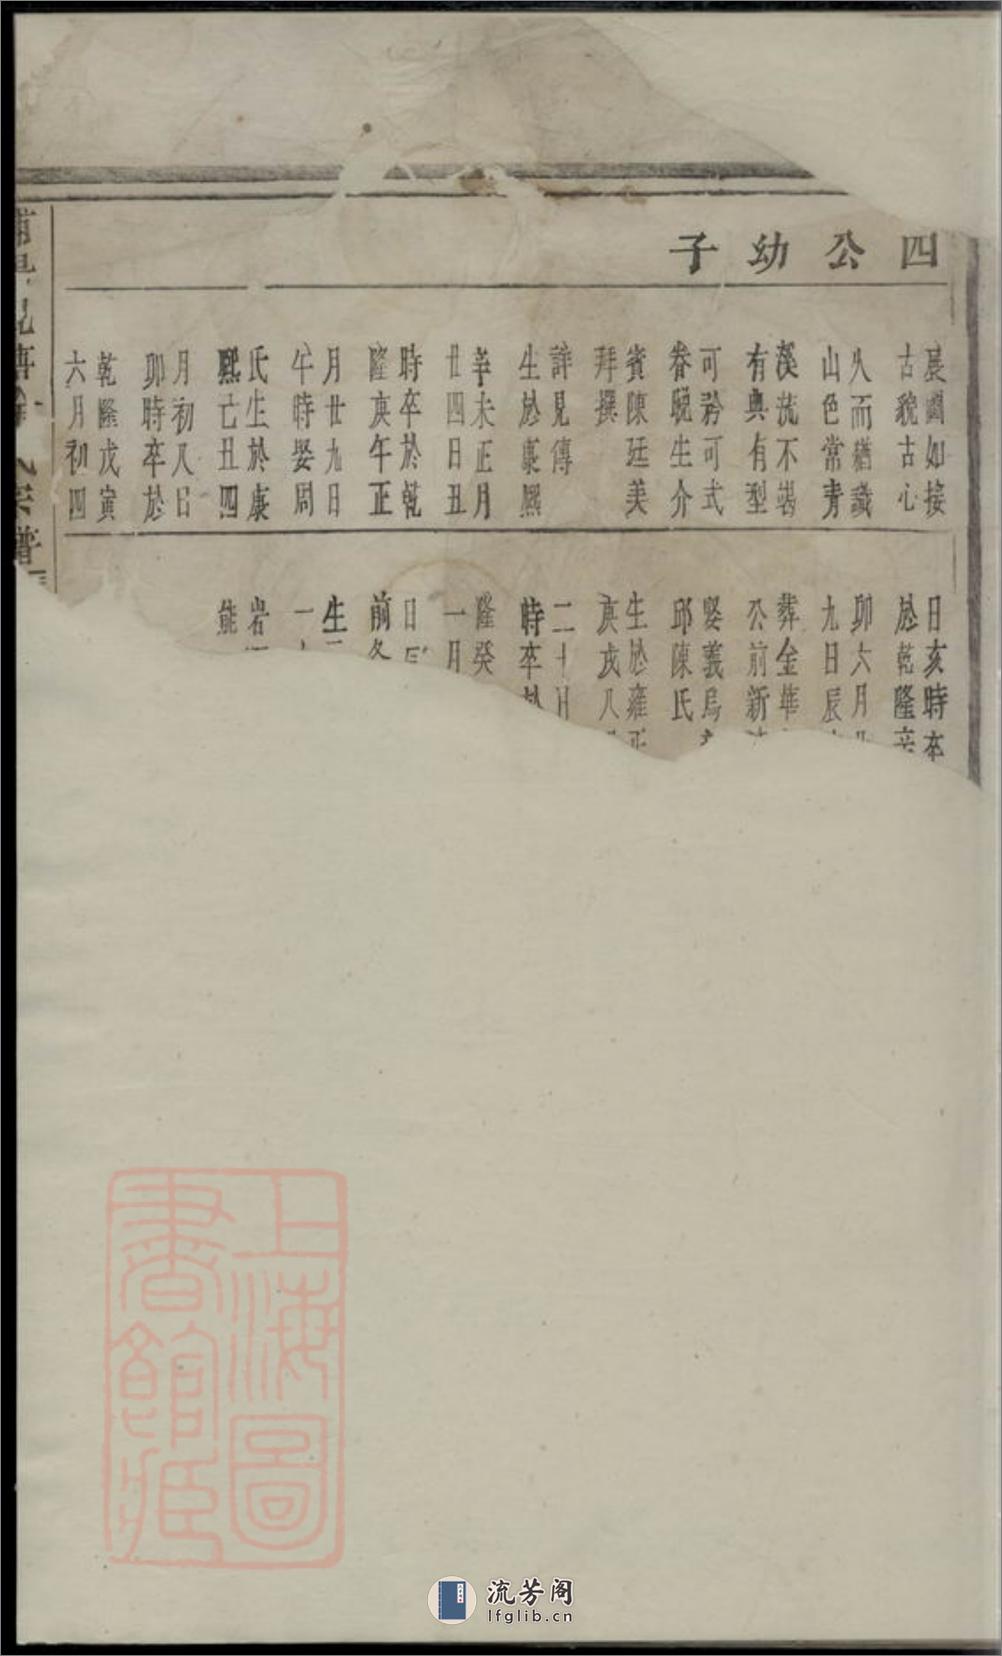 四公幼子
晨園如接
古貌古心
久而猶識
山色常青
溪流不竭
有典有型
可矜可式
眷晚生介
賓陳廷美
拜撰
詳見傳
生於康熙
辛未正月
廿四日丑
時卒於乾
隆庚午正
月廿九日
午時娶周
氏生於康
熙己丑四
月初八日
卯時卒於
乾隆戊寅
六月初四
日亥時卒
於乾隆辛
卯六月
九日辰
葬金華
公前新
娶義烏
邱陳氏
生於雍正
庚戌八
二十
時卒於
隆癸
一月
日
前
生
一
岩
熊
宗譜
上海圖書館藏
流芳阁
lfglib.cn